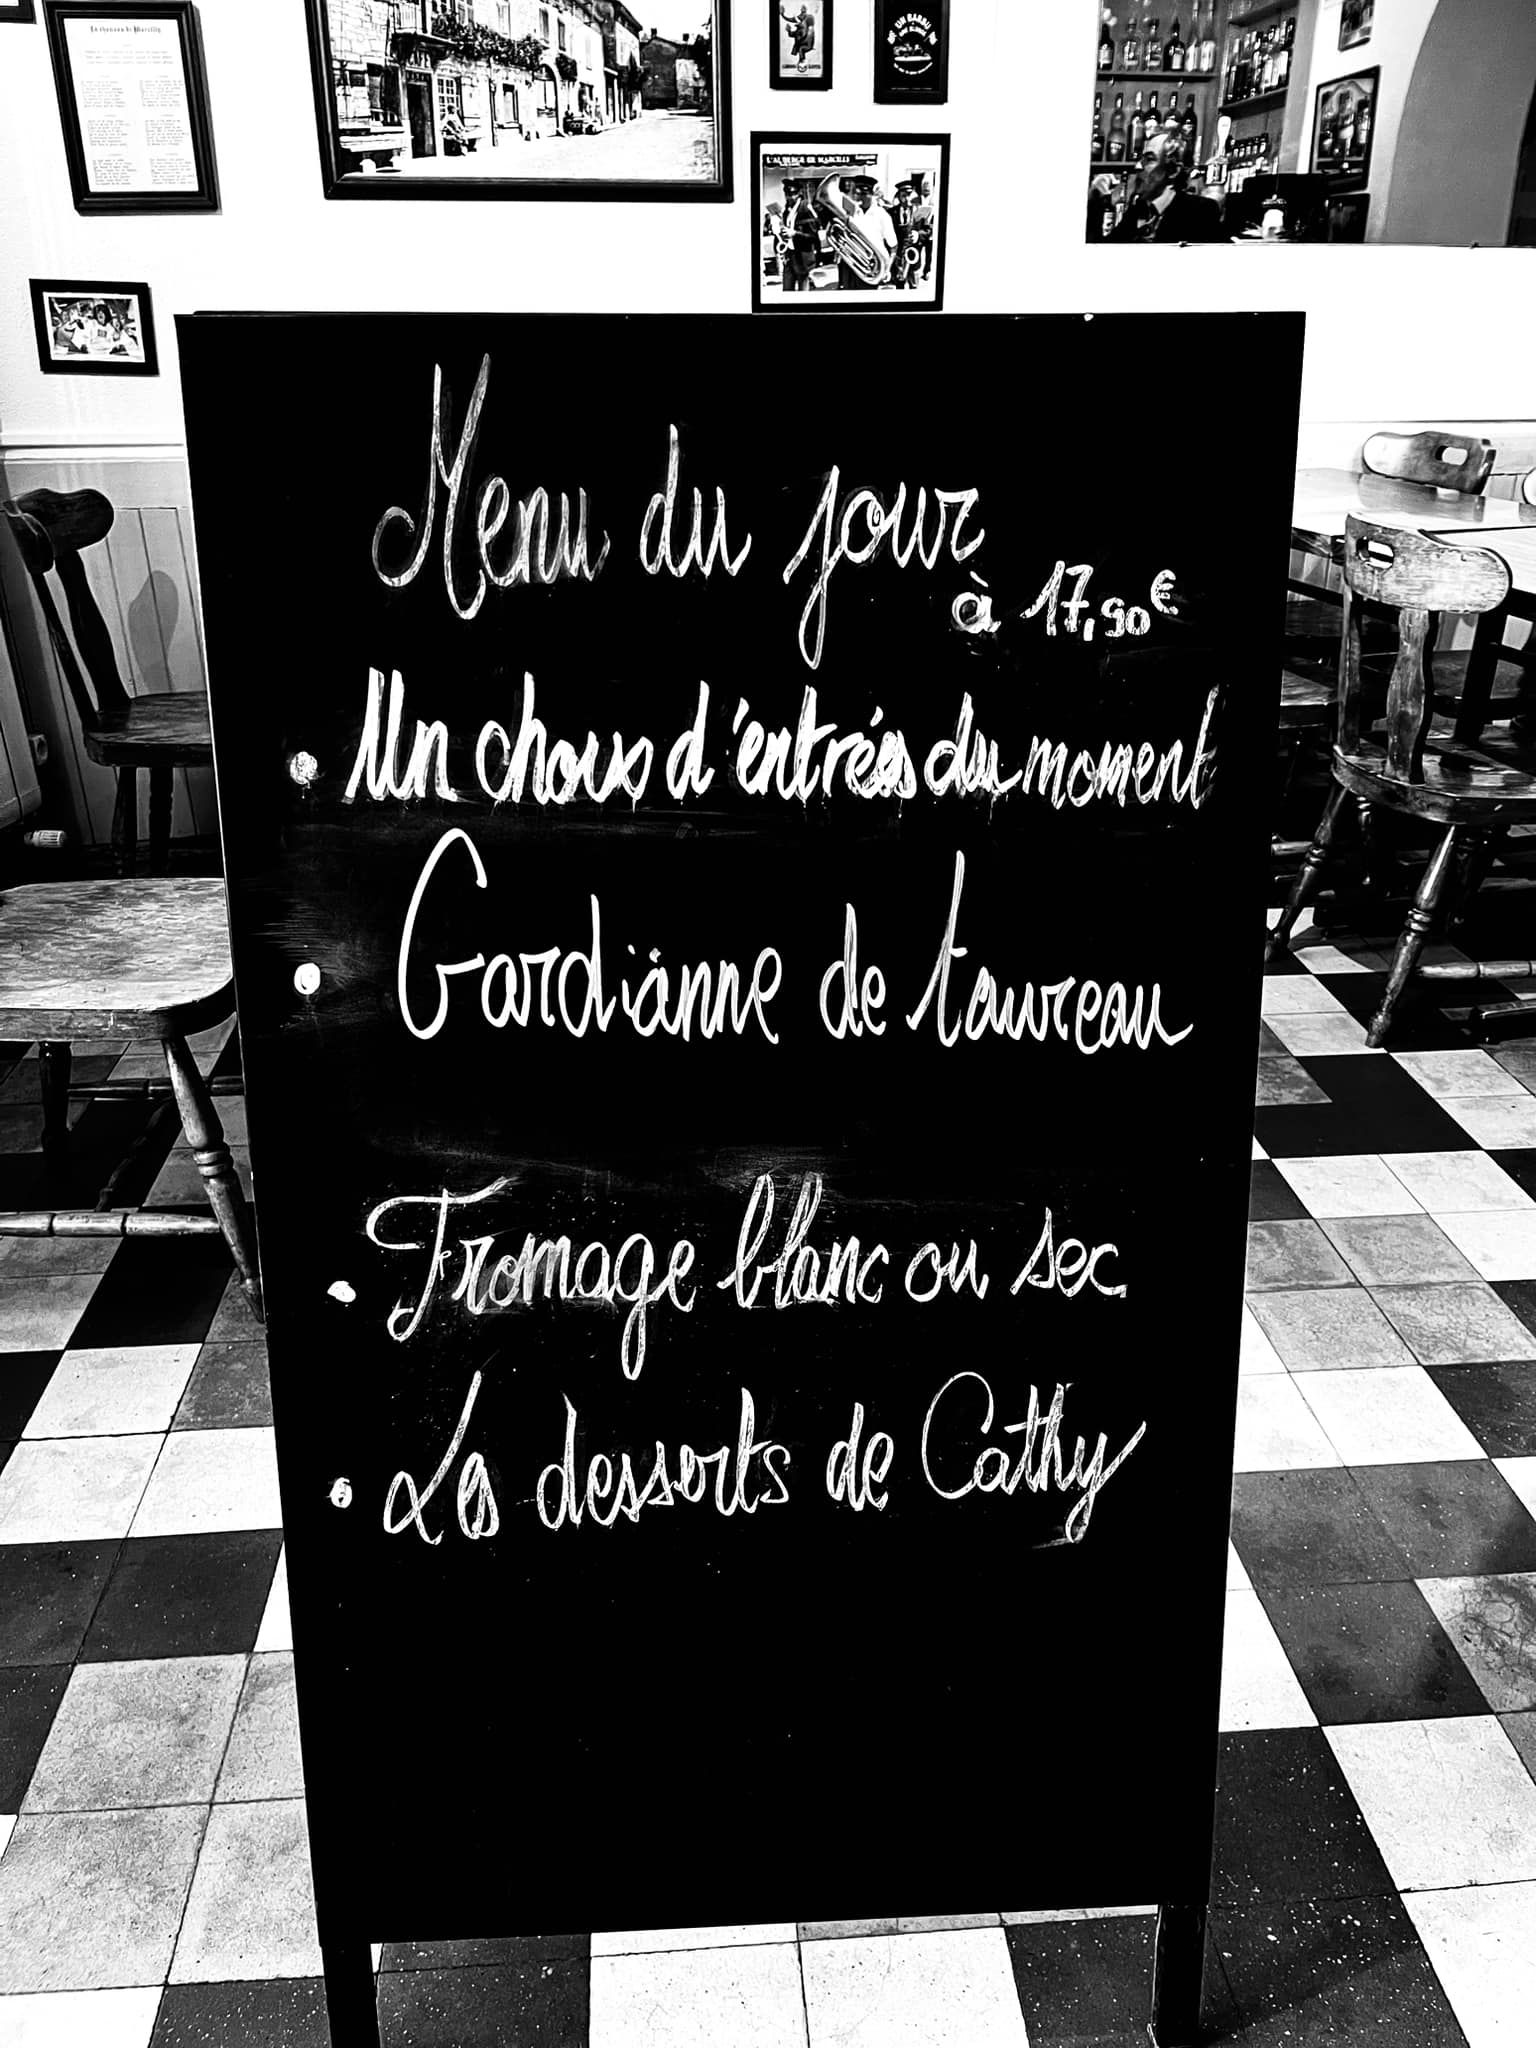 La chanson de Marcilly
UN BARBU
L'AUBERGE DE MARCILLY
Menu du jour
à 17,90€
• Un choix d'entrées du moment
• Gardianne de taureau
• Fromage blanc ou sec
• Les desserts de Cathy